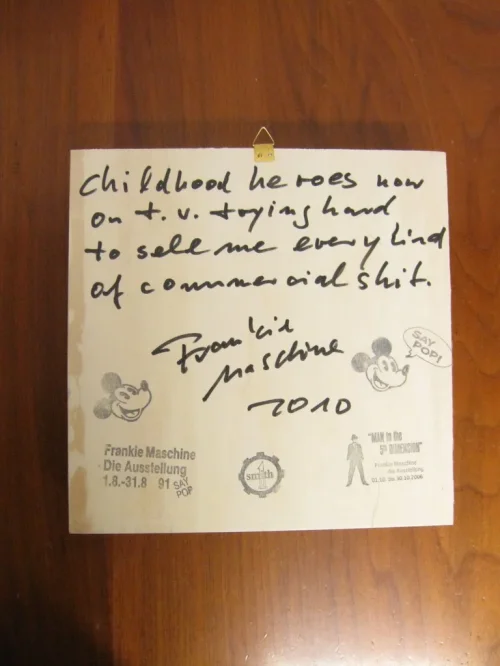 childhood heroes now
on t.v. trying hard
to sell me every kind
of commercial shit.
Frankie
Maschine
2010
SAY
POP!
Frankie Maschine
Die Ausstellung
1.8.-31.8 91 SAY
POP
smith
"MAN in the
5th DIMENSION"
Frankie Maschine
die Ausstellung